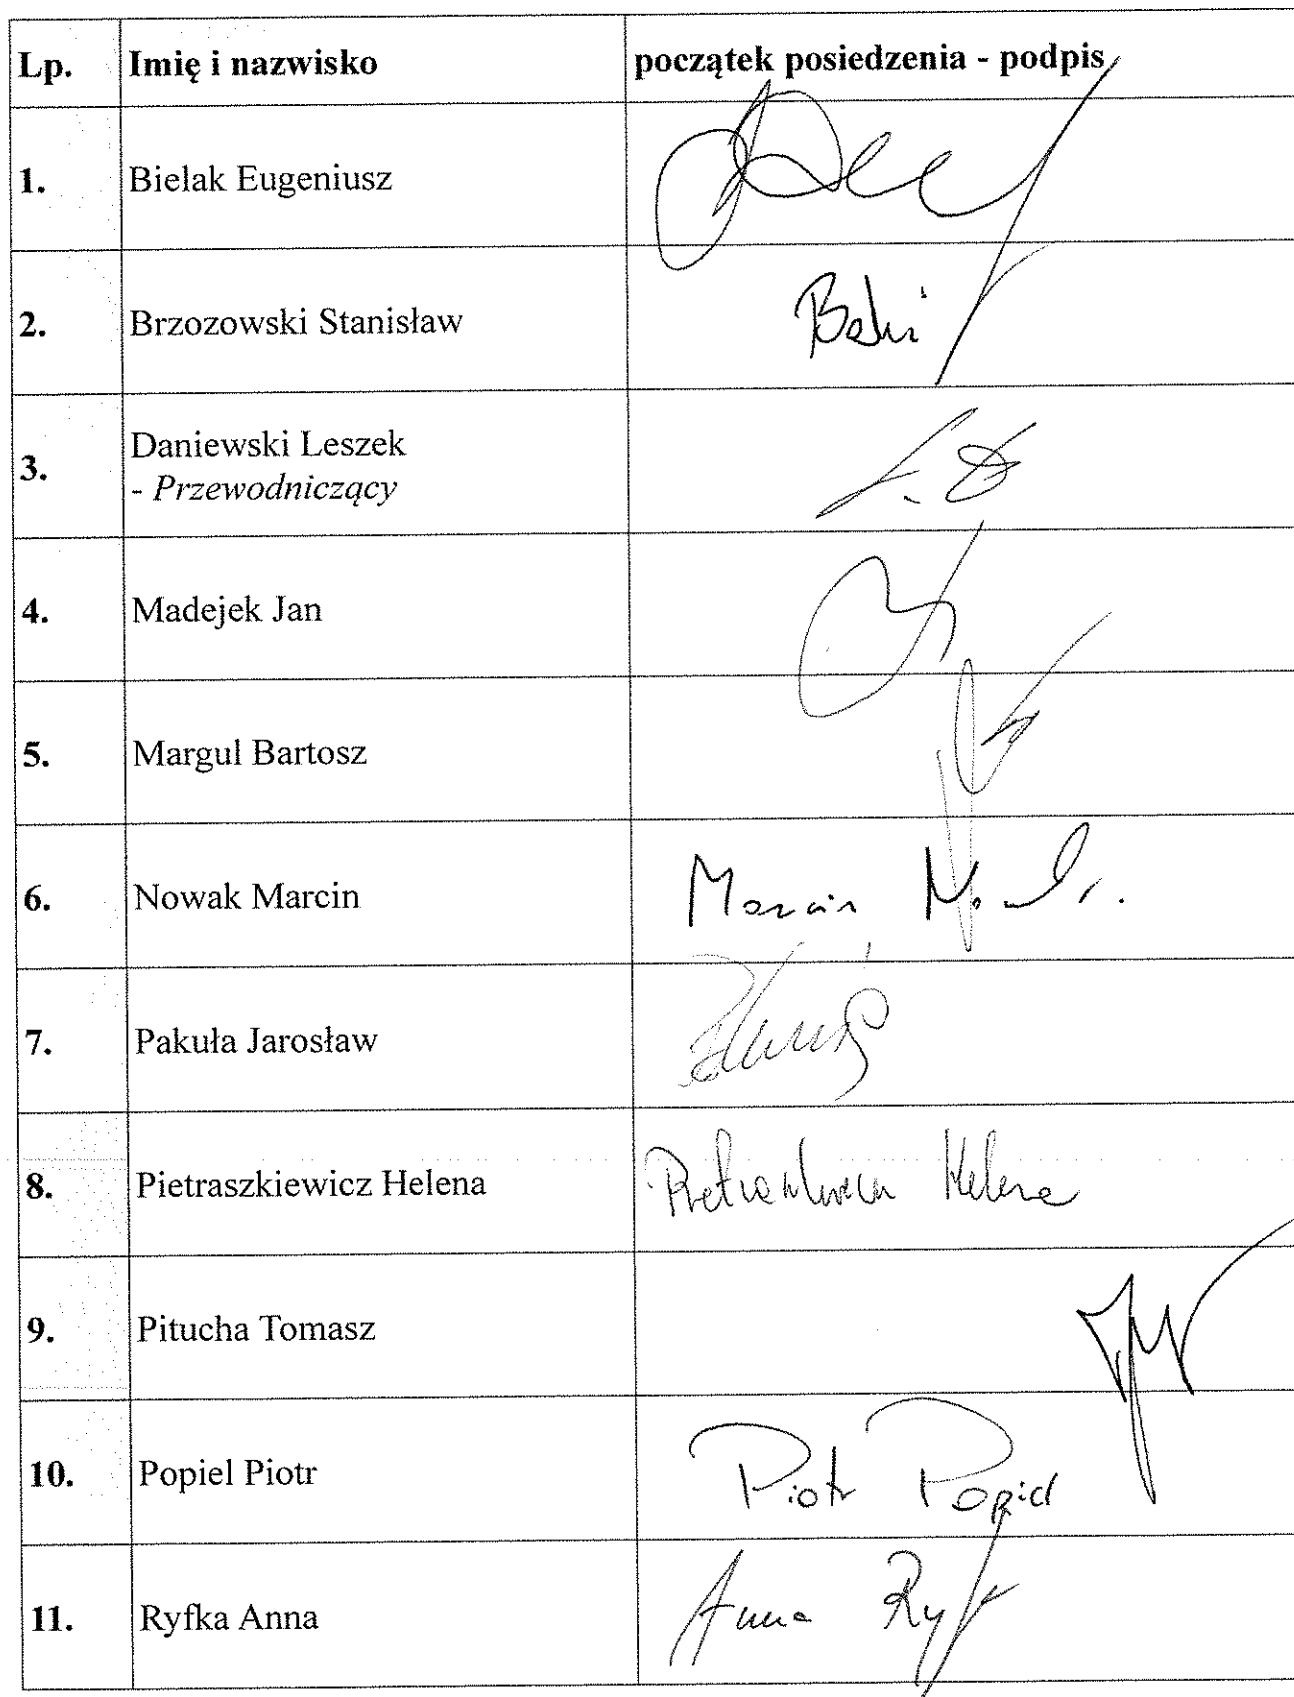 Lp. Imię i nazwisko początek posiedzenia - podpis
1. Bielak Eugeniusz
2. Brzozowski Stanisław
3. Daniewski Leszek
- Przewodniczący
4. Madejek Jan
5. Margul Bartosz
6. Nowak Marcin Marcin
7. Pakuła Jarosław
8. Pietraszkiewicz Helena Helena
9. Pitucha Tomasz
10. Popiel Piotr Piotr Popiel
11. Ryfka Anna Anna